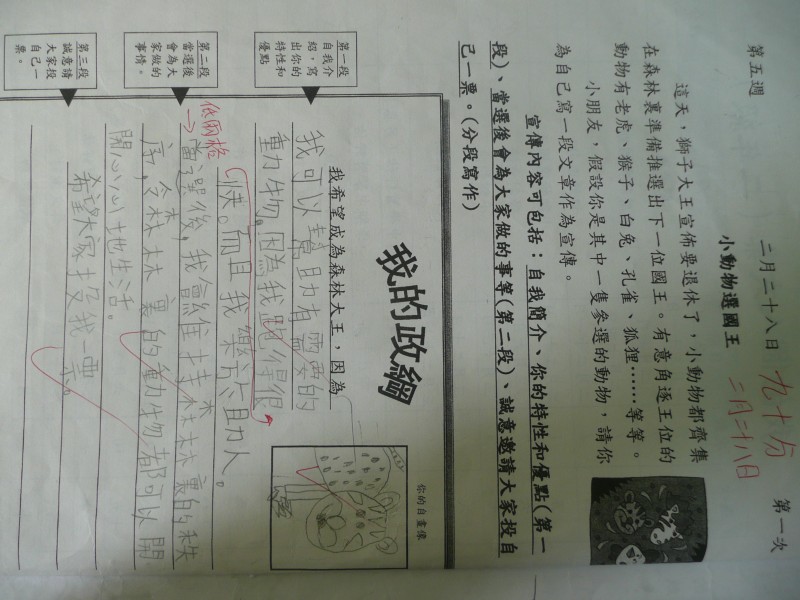 第五週 二月二十八日 第一次
九十分
二月二十八日
小動物選國王
這天，獅子大王宣佈要退休了，小動物都齊集
在森林裏準備推選出下一位國王。有意角逐王位的
動物有老虎、猴子、白兔、孔雀、狐狸……等等。
小朋友，假設你是其中一隻參選的動物，請你
為自己寫一段文章作為宣傳。
宣傳內容可包括：自我簡介、你的特性和優點（第一
段）、當選後會為大家做的事等（第二段）、誠意邀請大家投自
己一票。（分段寫作）
我的政綱
你的自畫像
我希望成為森林大王，因為
第一段
自我介
紹，寫
出你的
特性和
優點
我可以幫助有需要的
動物，因為我跑得很
快。而且我樂於助人。
低兩格
第二段
當選後
會為大
家做的
事情。
當選後，我會維持森林裏的秩
序，令森林裏的動物都可以開
開心心地生活。
第三段
誠意請
大家投
自己一
票。
希望大家投我一票。